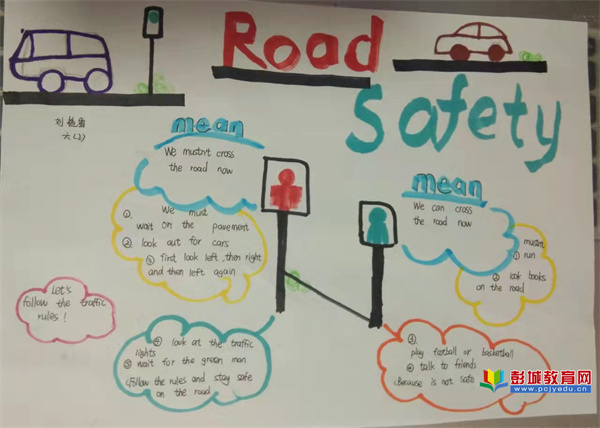 Road
Safety
六(2)
mean
We mustn't cross
the road now
① We must
wait on the pavement
② look out for cars
③ first look left, then right
and then left again
Let's
follow the traffic
rules!
④ look at the traffic
lights
⑤ wait for the green man
⑥ follow the rules and stay safe
on the road
mean
We can cross
the road now
mustn't
① run
② look books
on the road
③
play football or basketball
④ talk to friends
Because is not safe
彭城教育网
www.pcjyedu.cn